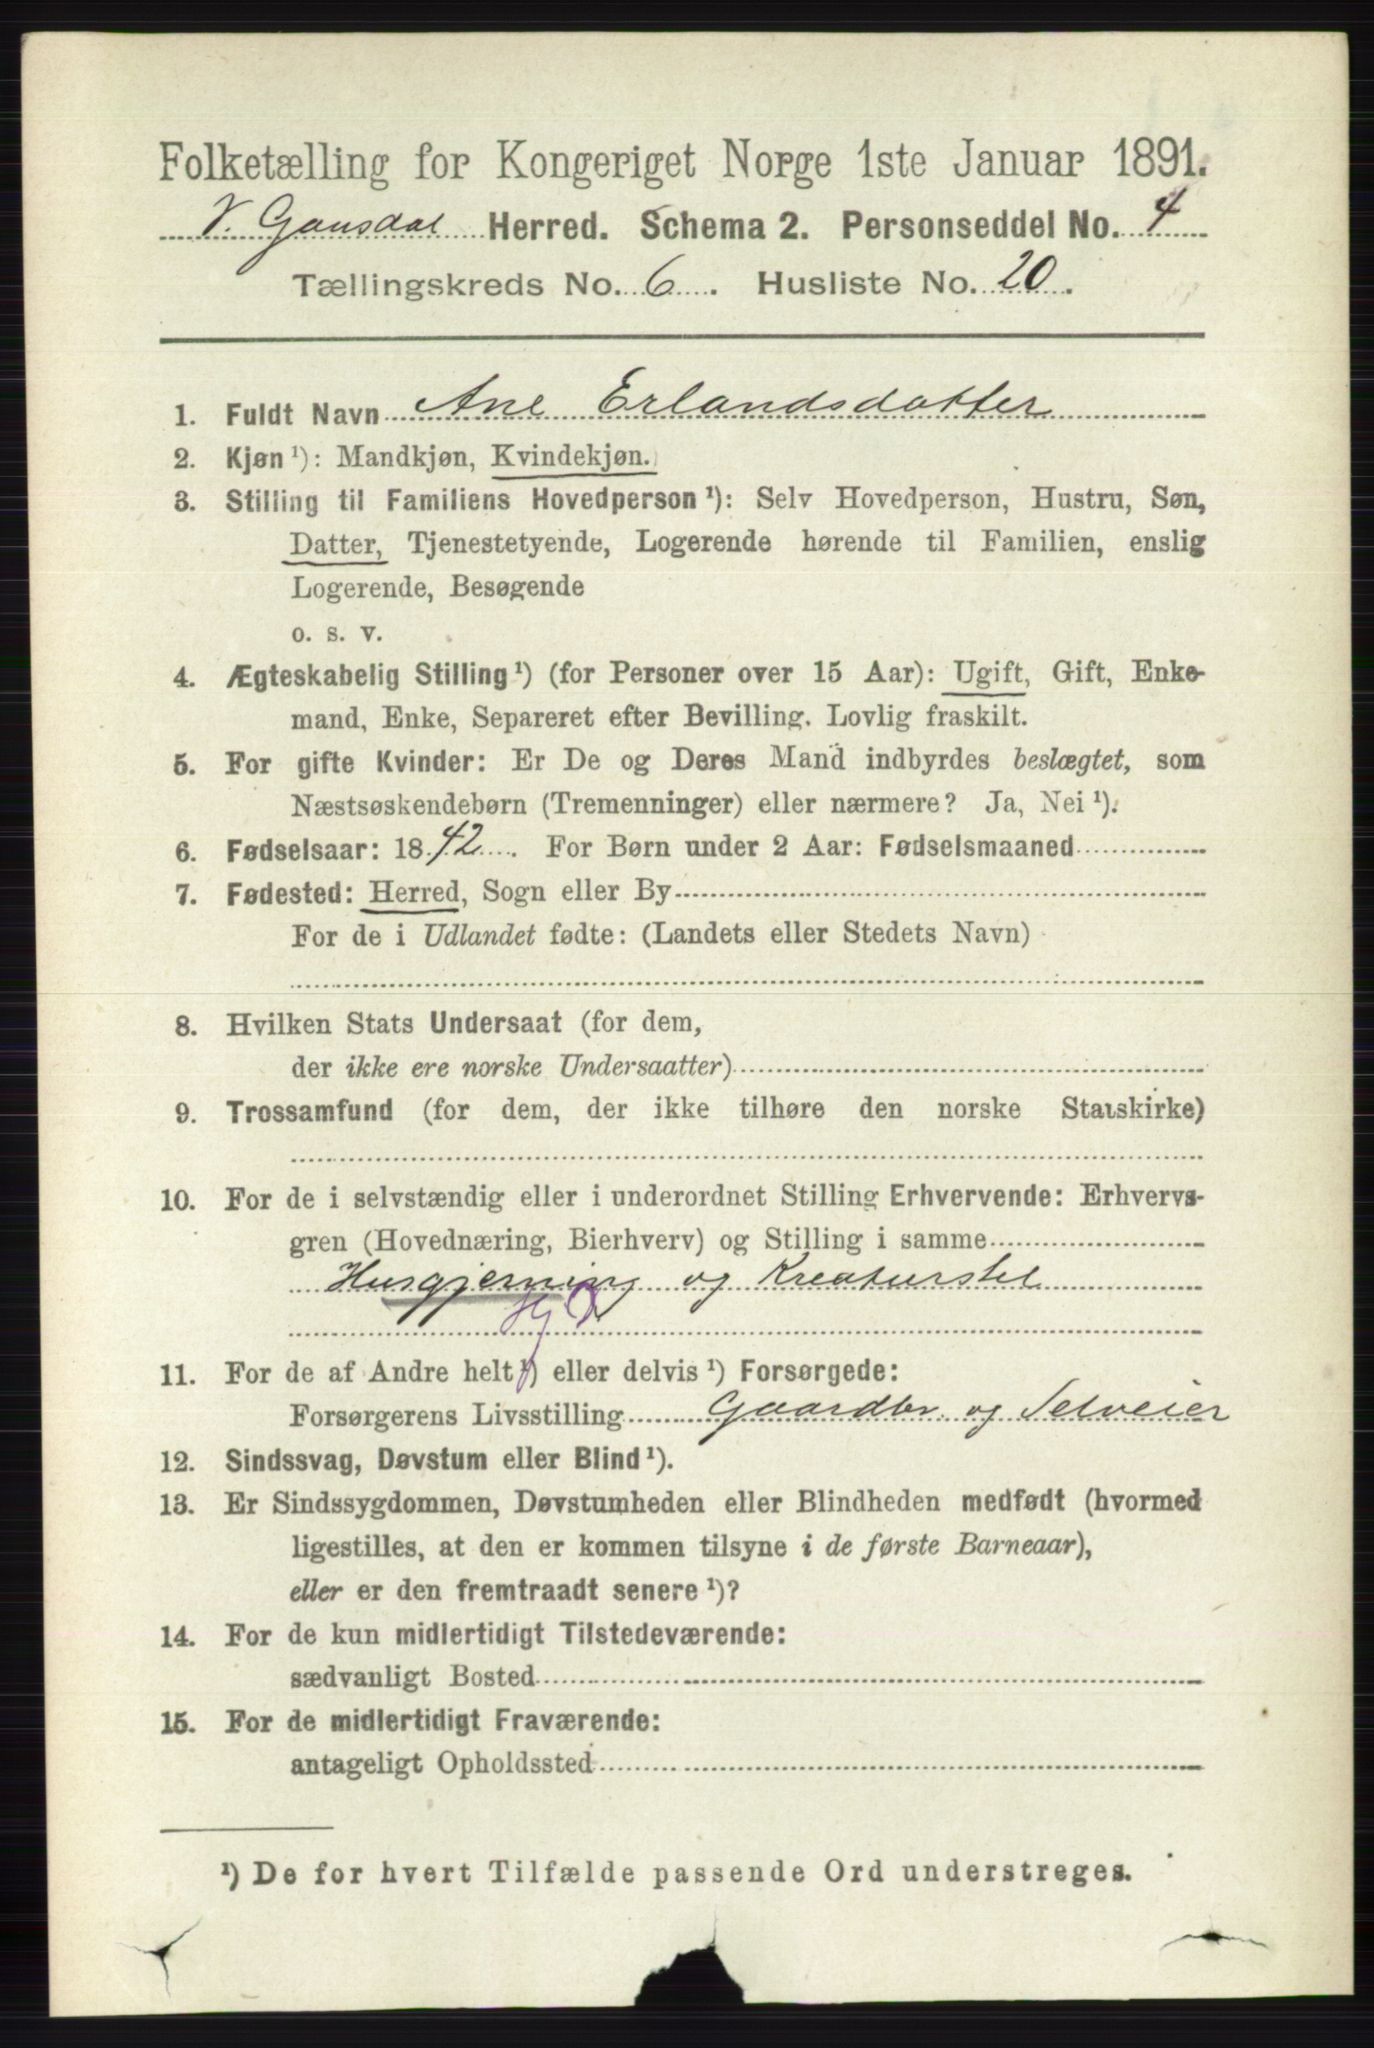 Folketælling for Kongeriget Norge 1ste Januar 1891.
V. Gausdal Herred. Schema 2. Personseddel No. 4
Tællingskreds No. 6. Husliste No. 20.
1. Fuldt Navn Ane Erlandsdatter
2. Kjøn ¹): Mandkjøn, Kvindekjøn.
3. Stilling til Familiens Hovedperson ¹): Selv Hovedperson, Hustru, Søn,
Datter, Tjenestetyende, Logerende hørende til Familien, enslig
Logerende, Besøgende
o. s. v.
4. Ægteskabelig Stilling ¹) (for Personer over 15 Aar): Ugift, Gift, Enke-
mand, Enke, Separeret efter Bevilling. Lovlig fraskilt.
5. For gifte Kvinder: Er De og Deres Mand indbyrdes beslægtet, som
Næstsøskendebørn (Tremenninger) eller nærmere? Ja, Nei ¹).
6. Fødselsaar: 1842. For Børn under 2 Aar: Fødselsmaaned
7. Fødested: Herred, Sogn eller By
For de i Udlandet fødte: (Landets eller Stedets Navn)
8. Hvilken Stats Undersaat (for dem,
der ikke ere norske Undersaatter)
9. Trossamfund (for dem, der ikke tilhøre den norske Statskirke)
10. For de i selvstændig eller i underordnet Stilling Erhvervende: Erhvervs-
gren (Hovednæring, Bierhverv) og Stilling i samme
Husgjerning og Kreaturstel
11. For de af Andre helt ¹) eller delvis ¹) Forsørgede:
Forsørgerens Livsstilling Gaardbr. og Selveier
12. Sindssvag, Døvstum eller Blind ¹).
13. Er Sindssygdommen, Døvstumheden eller Blindheden medfødt (hvormed
ligestilles, at den er kommen tilsyne i de første Barneaar),
eller er den fremtraadt senere ¹)?
14. For de kun midlertidigt Tilstedeværende:
sædvanligt Bosted
15. For de midlertidigt Fraværende:
antageligt Opholdssted
¹) De for hvert Tilfælde passende Ord understreges.